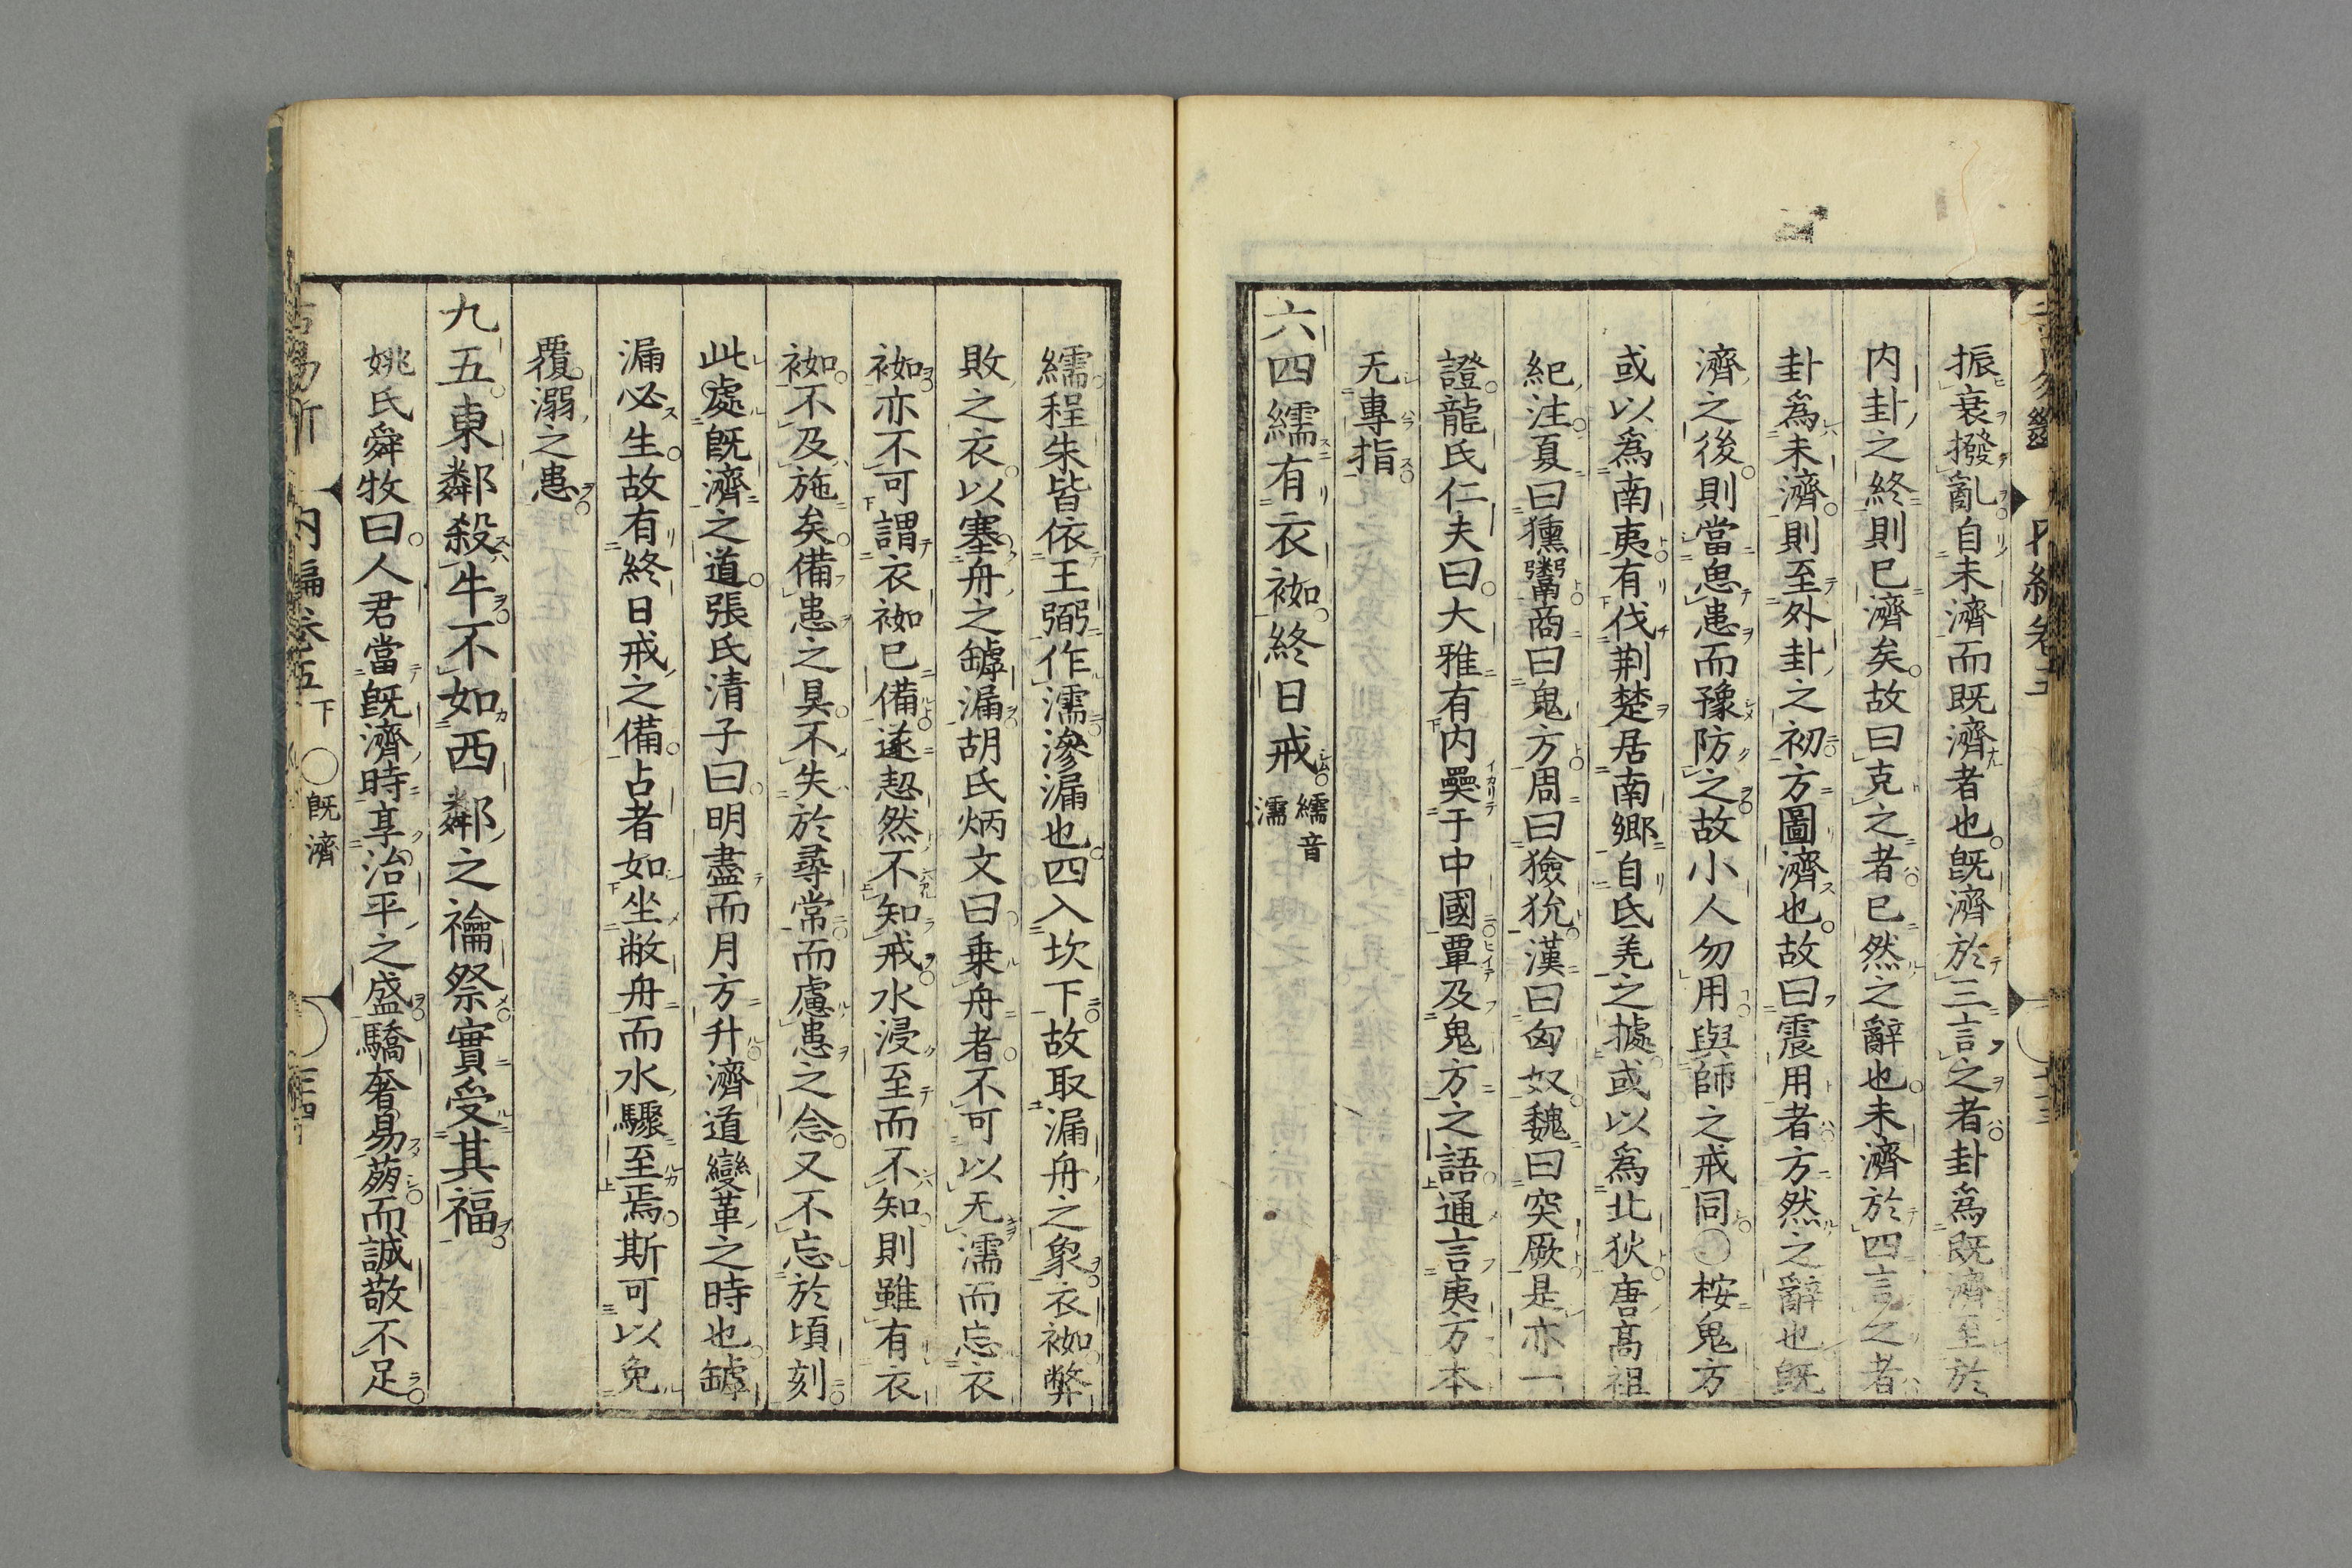 振衰撥亂自未濟而既濟者也既濟於三言之者卦爲既濟至於
内卦之終則已濟矣故曰克之者已然之辭也未濟於四言之者
卦爲未濟則至外卦之初方圖濟也故曰震用者方然之辭也既
濟之後則當思患而豫防之故小人勿用與師之戒同○桉鬼方
或以爲南夷有伐荆楚居南鄉自氐羌之據或以爲北狄唐高祖
紀注夏曰獯鬻商曰鬼方周曰獫狁漢曰匈奴魏曰突厥是亦一
證龍氏仁夫曰大雅有内奰于中國覃及鬼方之語通言夷方本
无專指
六四繻有衣袽終日戒 繻音濡
繻程朱皆依王弼作濡滲漏也四入坎下故取漏舟之象衣袽弊
敗之衣以塞舟之罅漏胡氏炳文曰乗舟者不可以无濡而忘衣
袽亦不可謂衣袽已備遂恝然不知戒水浸至而不知則雖有衣
袽不及施矣備患之具不失於尋常而慮患之念又不忘於頃刻
此處既濟之道張氏清子曰明盡而月方升濟道變革之時也罅
漏必生故有終日戒之備占者如坐敝舟而水驟至焉斯可以免
覆溺之患
九五東鄰殺牛不如西鄰之禴祭實受其福
姚氏舜牧曰人君當既濟時享治平之盛驕奢易萌而誠敬不足
内編卷五下 ○既濟